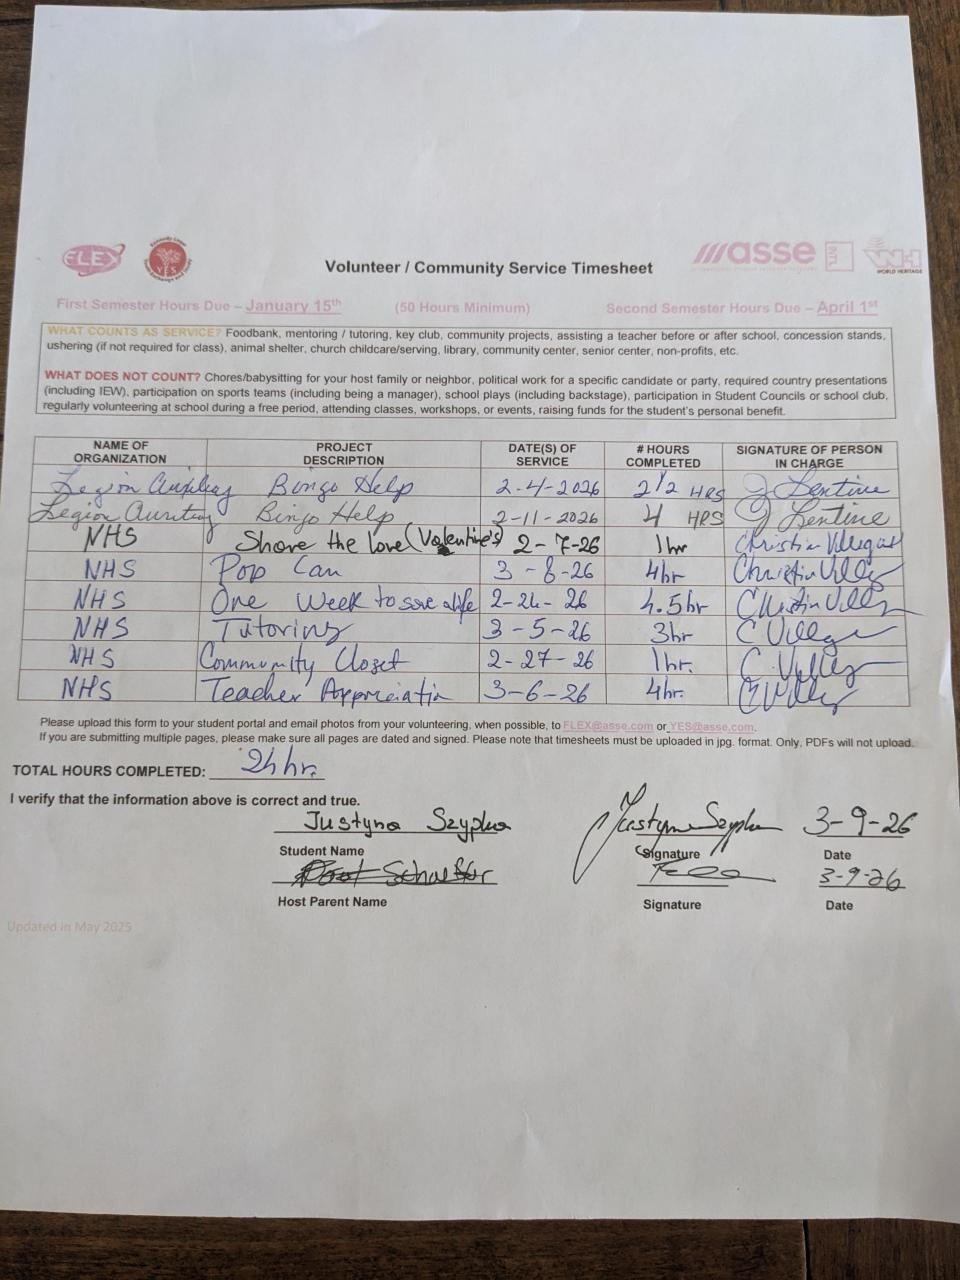 FLEX
YES
Volunteer / Community Service Timesheet
asse
INT'L
WH
WORLD HERITAGE
First Semester Hours Due – January 15th (50 Hours Minimum) Second Semester Hours Due – April 1st
WHAT COUNTS AS SERVICE? Foodbank, mentoring / tutoring, key club, community projects, assisting a teacher before or after school, concession stands,
ushering (if not required for class), animal shelter, church childcare/serving, library, community center, senior center, non-profits, etc.
WHAT DOES NOT COUNT? Chores/babysitting for your host family or neighbor, political work for a specific candidate or party, required country presentations
(including IEW), participation on sports teams (including being a manager), school plays (including backstage), participation in Student Councils or school club,
regularly volunteering at school during a free period, attending classes, workshops, or events, raising funds for the student's personal benefit.
NAME OF ORGANIZATION PROJECT DESCRIPTION DATE(S) OF SERVICE # HOURS COMPLETED SIGNATURE OF PERSON IN CHARGE
Legion Bingo Help 2-4-2026 2 1/2 HRS J Lentine
Legion Bingo Help 2-11-2026 4 HRS J Lentine
NHS Share the love (Valentine's) 2-7-26 1hr Christin Villegas
NHS Pop Can 3-8-26 4hr Christin
NHS One Week to save a life 2-24-26 4.5hr Christin
NHS Tutoring 3-5-26 3hr C
NHS Community Closet 2-27-26 1hr. C.
NHS Teacher Appreciatin 3-6-26 4hr. C
Please upload this form to your student portal and email photos from your volunteering, when possible, to FLEX@asse.com or YES@asse.com.
If you are submitting multiple pages, please make sure all pages are dated and signed. Please note that timesheets must be uploaded in jpg. format. Only, PDFs will not upload.
TOTAL HOURS COMPLETED: 24 hr.
I verify that the information above is correct and true.
Justyna Szypka Justyna Szypka 3-9-26
Student Name Signature Date
3-9-26
Host Parent Name Signature Date
Updated in May 2025